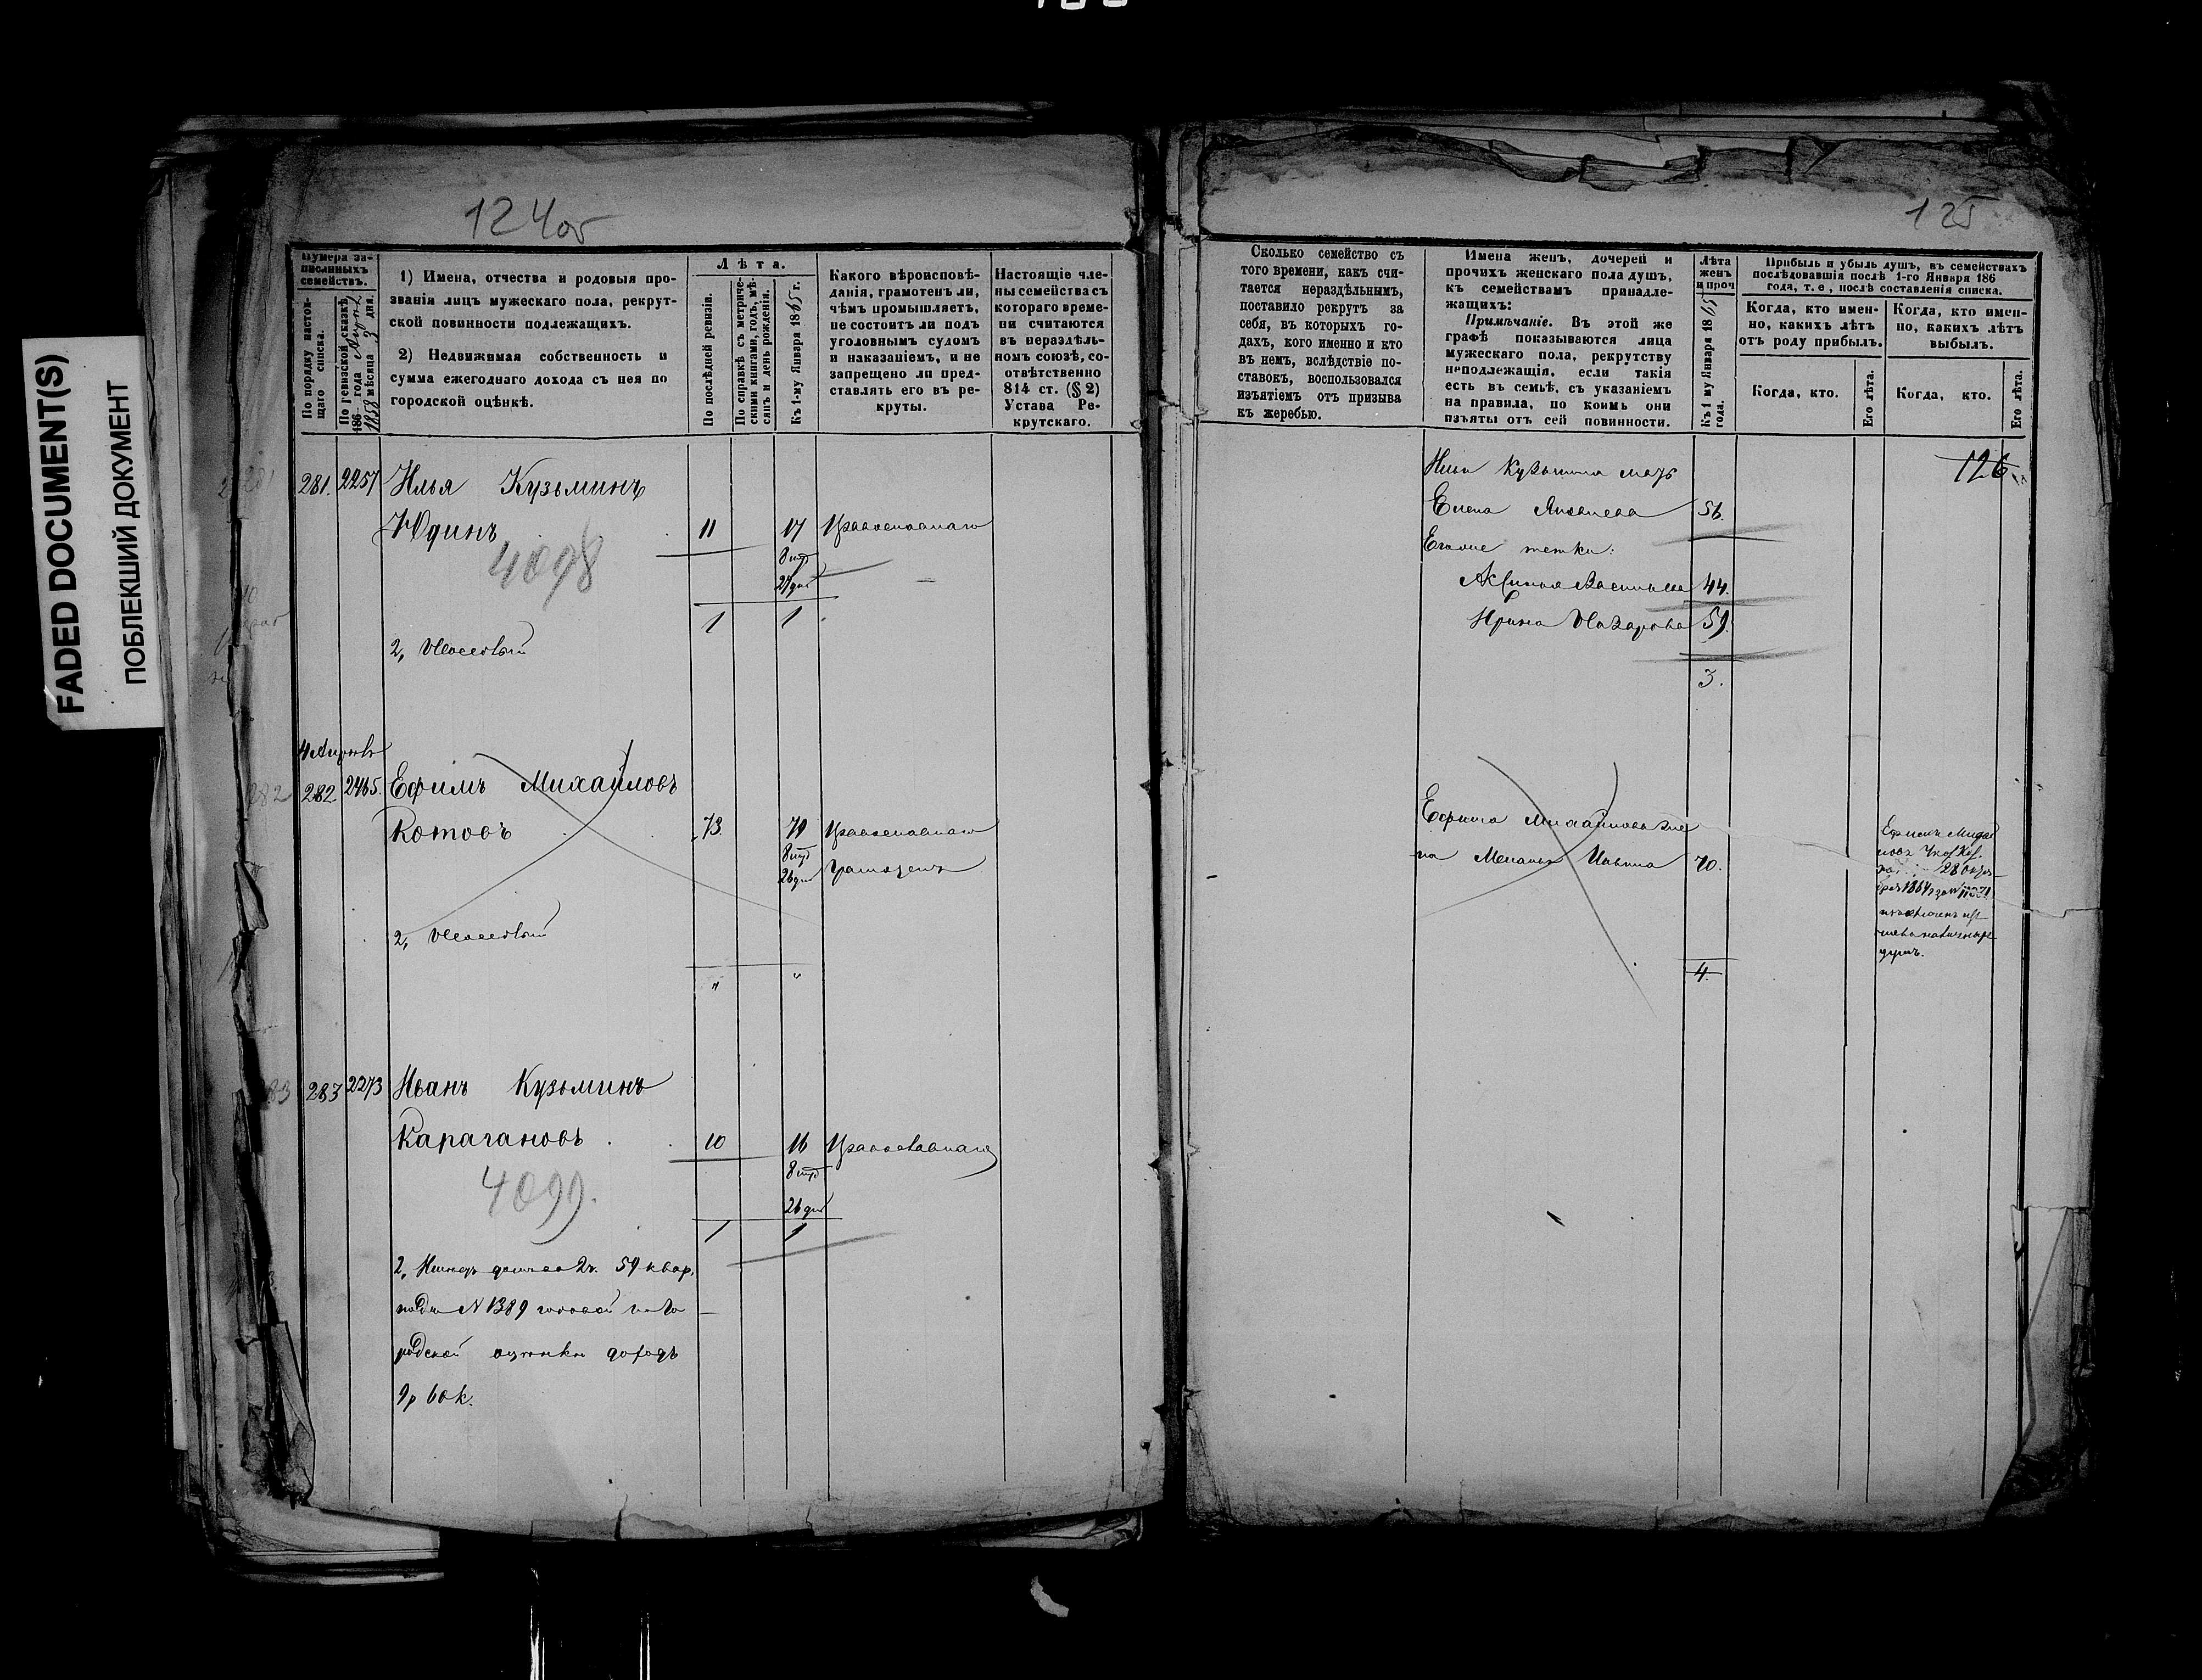 FADED DOCUMENT(S)
ПОБЛЕКШИЙ ДОКУМЕНТ
124об
Нумера за-
писанныхъ
семействъ.
По порядку настоя-
щаго списка.
По ревизской сказкѣ
186 года
1858 мѣсяца 3 дня.
1) Имена, отчества и родовыя про-
званія лицъ мужескаго пола, рекрут-
ской повинности подлежащихъ.
2) Недвижимая собственность и
сумма ежегоднаго дохода съ нея по
городской оцѣнкѣ.
Лѣта.
По послѣдней ревизіи.
По справкѣ съ метриче-
скими книгами, годъ, мѣ-
сяцъ и день рожденія.
Къ 1-му Января 1865 г.
Какого вѣроисповѣ-
данія, грамотенъ ли,
чѣмъ промышляетъ,
не состоитъ ли подъ
уголовнымъ судомъ
и наказаніемъ, и не
запрещено ли пред-
ставлять его въ ре-
круты.
Настоящіе чле-
ны семейства съ
котораго време-
ни считаются
въ нераздѣль-
номъ союзѣ, со-
отвѣтственно
814 ст. (§ 2)
Устава Ре-
крутскаго.
281. 2257 Илья Кузьминъ
Юдинъ 11 17 Православнаго
8 мѣс
27 дн
4098
1 1
2,
282 2465. Ефимъ Михайловъ
Котовъ 73. 79 Православнаго
8 мѣс
26 дн Грамотенъ
2,
" "
283 2273 Иванъ Кузьминъ
Карагановъ 10 16 Православнаго
8 мѣс
26 дн
4099.
1 1
2, 2ч. 59 квар.
подъ N 1389 годовой по го
родской оцѣнки доходъ
9р 60 к.
125
Сколько семейство съ
того времени, какъ счи-
тается нераздѣльнымъ,
поставило рекрутъ за
себя, въ которыхъ го-
дахъ, кого именно и кто
въ немъ, вслѣдствіе по-
ставокъ, воспользовался
изъятіемъ отъ призыва
къ жеребью.
Имена женъ, дочерей и
прочихъ женскаго пола душъ,
къ семействамъ принадле-
жащихъ:
Примѣчаніе. Въ этой же
графѣ показываются лица
мужескаго пола, рекрутству
неподлежащія, если такія
есть въ семьѣ, съ указаніемъ
на правила, по коимъ они
изъяты отъ сей повинности.
Лѣта
женъ
и проч
Къ 1 му Января 1865
года.
Прибыль и убыль душъ, въ семействахъ
послѣдовавшія послѣ 1-го Января 186
года, т. е., послѣ составленія списка.
Когда, кто имен-
но, какихъ лѣтъ
отъ роду прибылъ.
Когда, кто имен-
но, какихъ лѣтъ
выбылъ.
Когда, кто.
Его лѣта.
Когда, кто.
Его лѣта.
126
Ильи Кузьмина мать
Елена Яковлева 56.
Его же тетки:
Аксинья Васильева 44.
Ирина Назарова 59.
3.
Ефима Михайлова же
на Меланья Ильина 70.
4.
Ефимъ Михай
ловъ
28 октя
бря 1864
душъ.